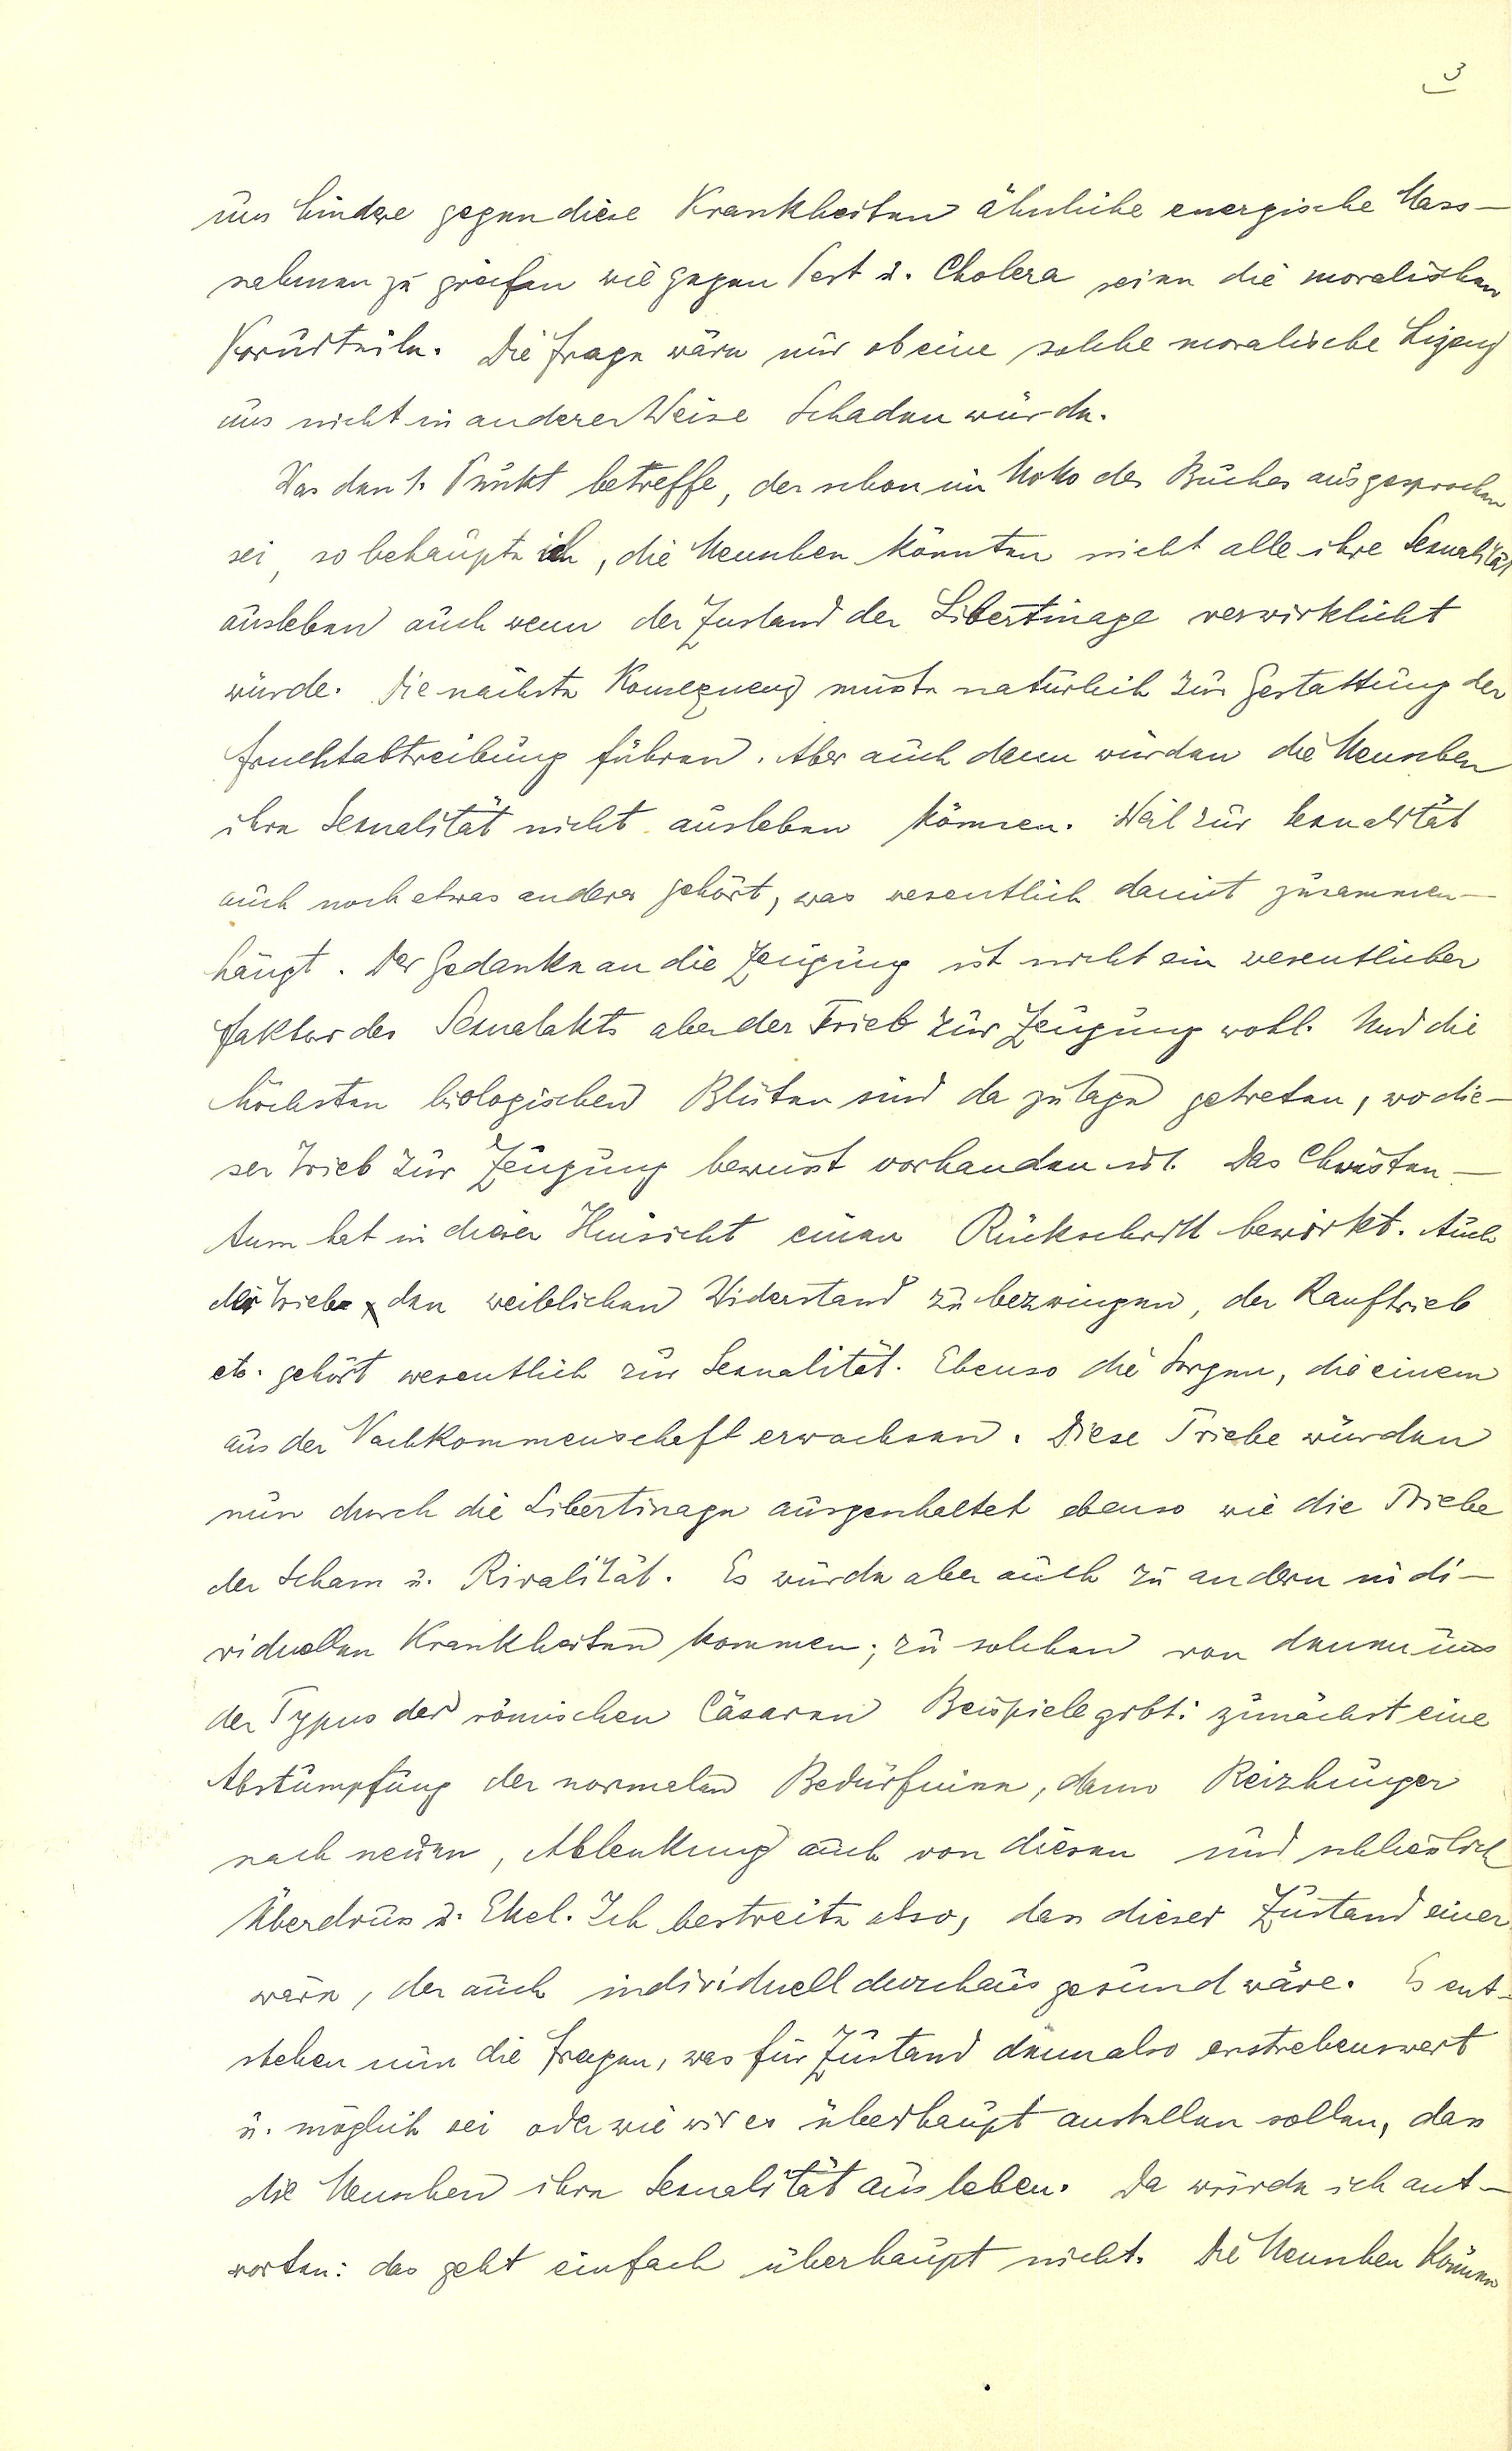 3
uns hindre gegen diese Krankheiten ähnliche energische Mass-
nahmen zu greifen wie gegen Pest u. Cholera seien die moralischen
Vorurteile. Die Frage wäre nur ob eine solche moralische Lizenz
uns nicht in anderer Weise Schaden würde.
Was den 1. Punkt betreffe, der schon im Motto des Buches ausgesprochen
sei, so behaupte ich, die Menschen könnten nicht alle ihre Sexualität
ausleben auch wenn der Zustand der Libertinage verwirklicht
würde. Die nächste Konsequenz müsste natürlich zur Gestattung der
Fruchtabtreibung führen. Aber auch dann würden die Menschen
ihre Sexualität nicht ausleben können. Weil zur Sexualität
auch noch etwas anderes gehört, was wesentlich damit zusammen-
hängt. Der Gedanke an die Zeugung ist nicht ein wesentlicher
Faktor des Sexualakts aber der Trieb zur Zeugung wohl. Und die
höchsten biologischen Blüten sind da zutage getreten, wo die-
ser Trieb zur Zeugung bewusst vorhanden ist. Das Christen-
tum hat in dieser Hinsicht einen Rückschritt bewirkt. Auch
der Trieb den weiblichen Widerstand zu bezwingen, der Rauftrieb
etc. gehört wesentlich zur Sexualität. Ebenso die Sorgen, die einem
aus der Nachkommenschaft erwachsen. Diese Triebe würden
nun durch die Libertinage ausgeschaltet ebenso wie die Triebe
der Scham u. Rivalität. Es würde aber auch zu andern indi-
viduellen Krankheiten kommen; zu solchen von denen uns
der Typus der römischen Cäsaren Beispiele gibt: zunächst eine
Abstumpfung der normalen Bedürfnisse, dann Reizhunger
nach neuen, Ablenkung auch von diesen und schliesslich
Überdruss u. Ekel. Ich bestreite also, dass dieser Zustand einer
wäre, der auch individuell durchaus gesund wäre. Es ent-
stehen nun die Fragen, was für Zustand denn also erstrebenswert
u. möglich sei oder wie wir es überhaupt anstellen sollen, dass
die Menschen ihre Sexualität ausleben. Da würde ich ant-
worten: das geht einfach überhaupt nicht. Die Menschen können